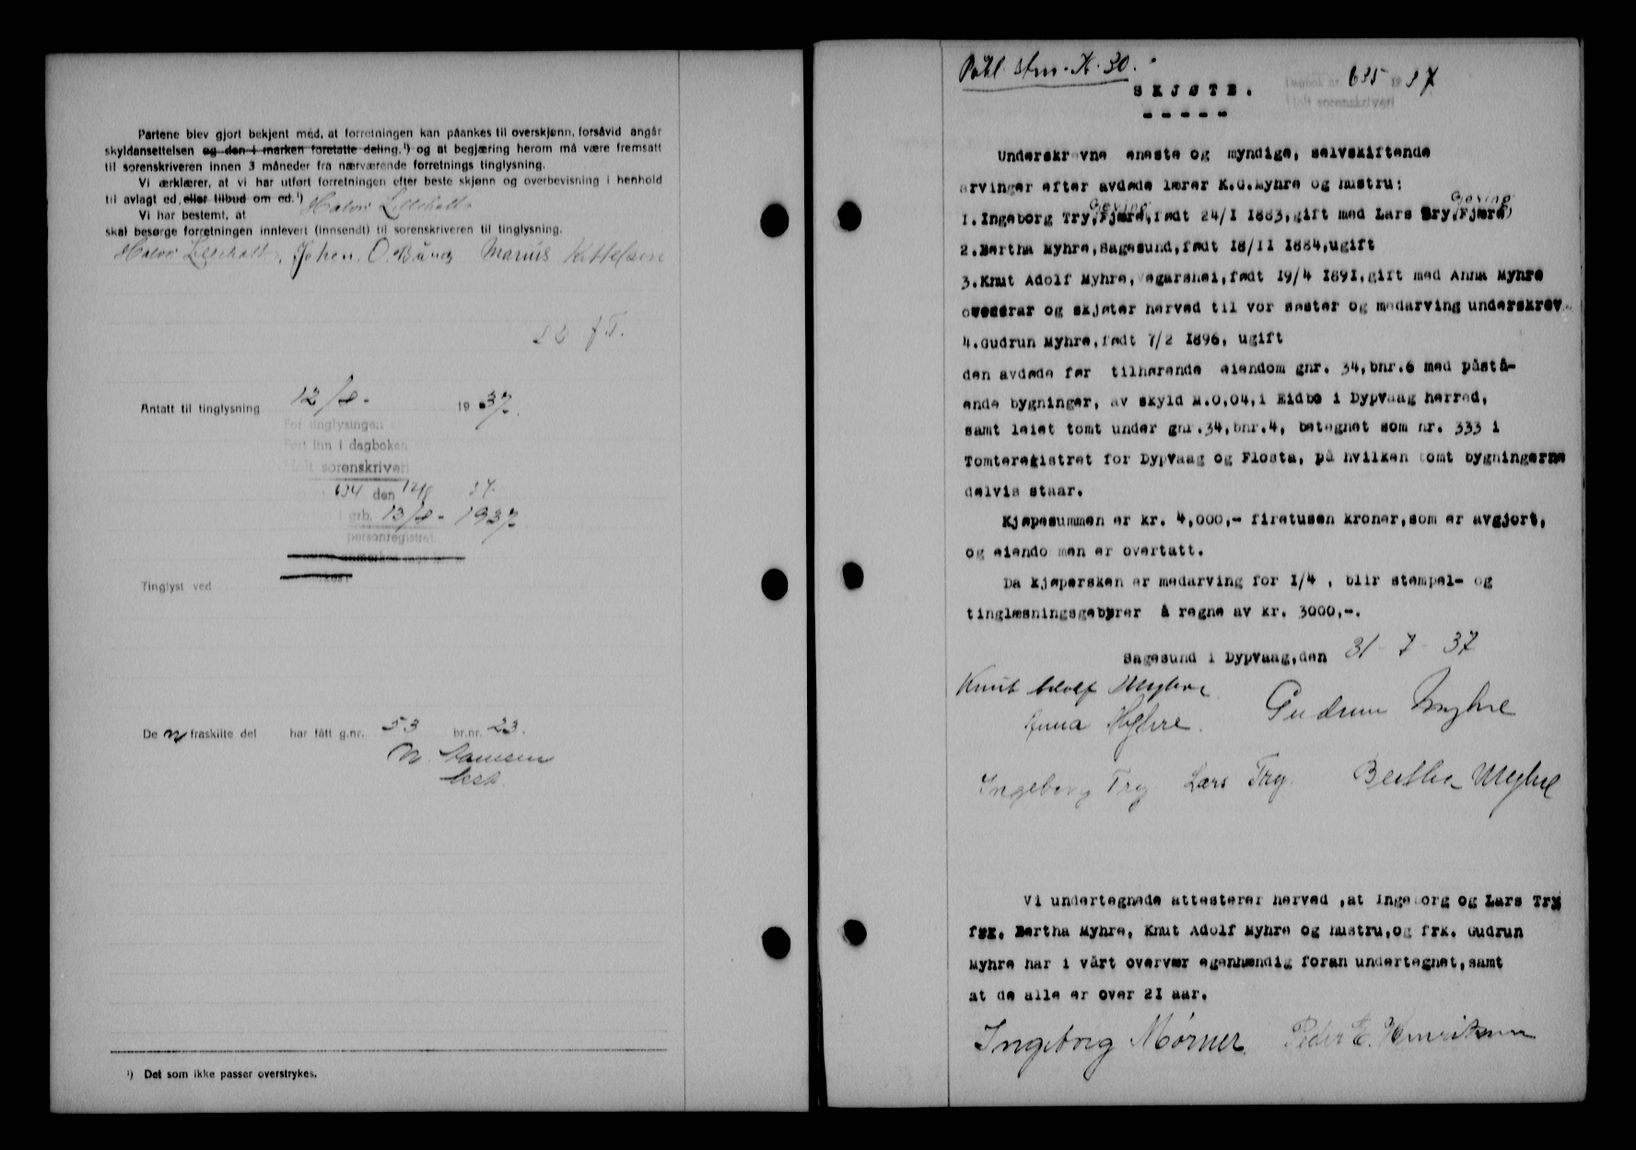 Partene blev gjort bekjent med, at forretningen kan påankes til overskjønn, forsåvid angår
skyldansettelsen og den i marken foretatte deling,¹) og at begjæring herom må være fremsatt
til sorenskriveren innen 3 måneder fra nærværende forretnings tinglysning.
Vi ærklærer, at vi har utført forretningen efter beste skjønn og overbevisning i henhold
til avlagt ed, eller tilbud om ed.¹)
Vi har bestemt, at Halvor Lilleholt
skal besørge forretningen innlevert (innsendt) til sorenskriveren til tinglysning.
Halvor Lilleholt, Johan O. Bång Marius Kittelsen
Antatt til tinglysning 12/8- 1937.
For tinglysingen
Ført inn i dagboken
Holt sorenskriveri
634 den 12/8 37.
grb. 13/8- 1937
personregistret
Tinglyst ved
De n fraskilte del har fått g.nr. 53 br.nr. 23.
¹) Det som ikke passer overstrykes.
Påkl. stm. K. 30.
SKJØTE.
Dagbok nr. 635 1937
Holt sorenskriveri
- - - - -
Underskrevne eneste og myndige, selvskiftende
arvinger efter avdøde lærer K.G.Myhre og hustru:
1.Ingeborg Try, Gjeving, Fjære, født 24/1 1883, gift med Lars Try, Gjeving (Fjære)
2.Bertha Myhre, Sagesund, født 18/11 1884, ugift
3.Knut Adolf Myhre, Vegarshei, født 19/4 1891, gift med Anna Myhre
overdrar og skjøter herved til vor søster og medarving underskrev.
4.Gudrun Myhre, født 7/2 1896, ugift
den avdøde før tilhørende eiendom gnr. 34, bnr.6 med påstå-
ende bygninger, av skyld M.0,04, i Eidbo i Dypvaag herred,
samt leiet tomt under gnr.34, bnr.4, betegnet som nr. 333 i
Tomteregistret for Dypvaag og Flosta, på hvilken tomt bygningerne
delvis staar.
Kjøpesummen er kr. 4,000,- firetusen kroner, som er avgjort,
og eiendo men er overtatt.
Da kjøpersken er medarving for 1/4 , blir stempel- og
tinglæsningsgebyrer å regne av kr. 3000,-.
Sagesund i Dypvaag, den 31-7-37
Knut Adolf Myhre
Anna Myhre. Gudrun Myhre
Ingeborg Try Lars Try. Bertha Myhre
Vi undertegnede attesterer herved ,at Ingeborg og Lars Try
frk. Bertha Myhre, Knut Adolf Myhre og hustru, og frk. Gudrun
Myhre har i vårt overvær egenhændig foran undertegnet, samt
at de alle er over 21 aar.
Ingeborg Mörner. Peder E. Henriksen